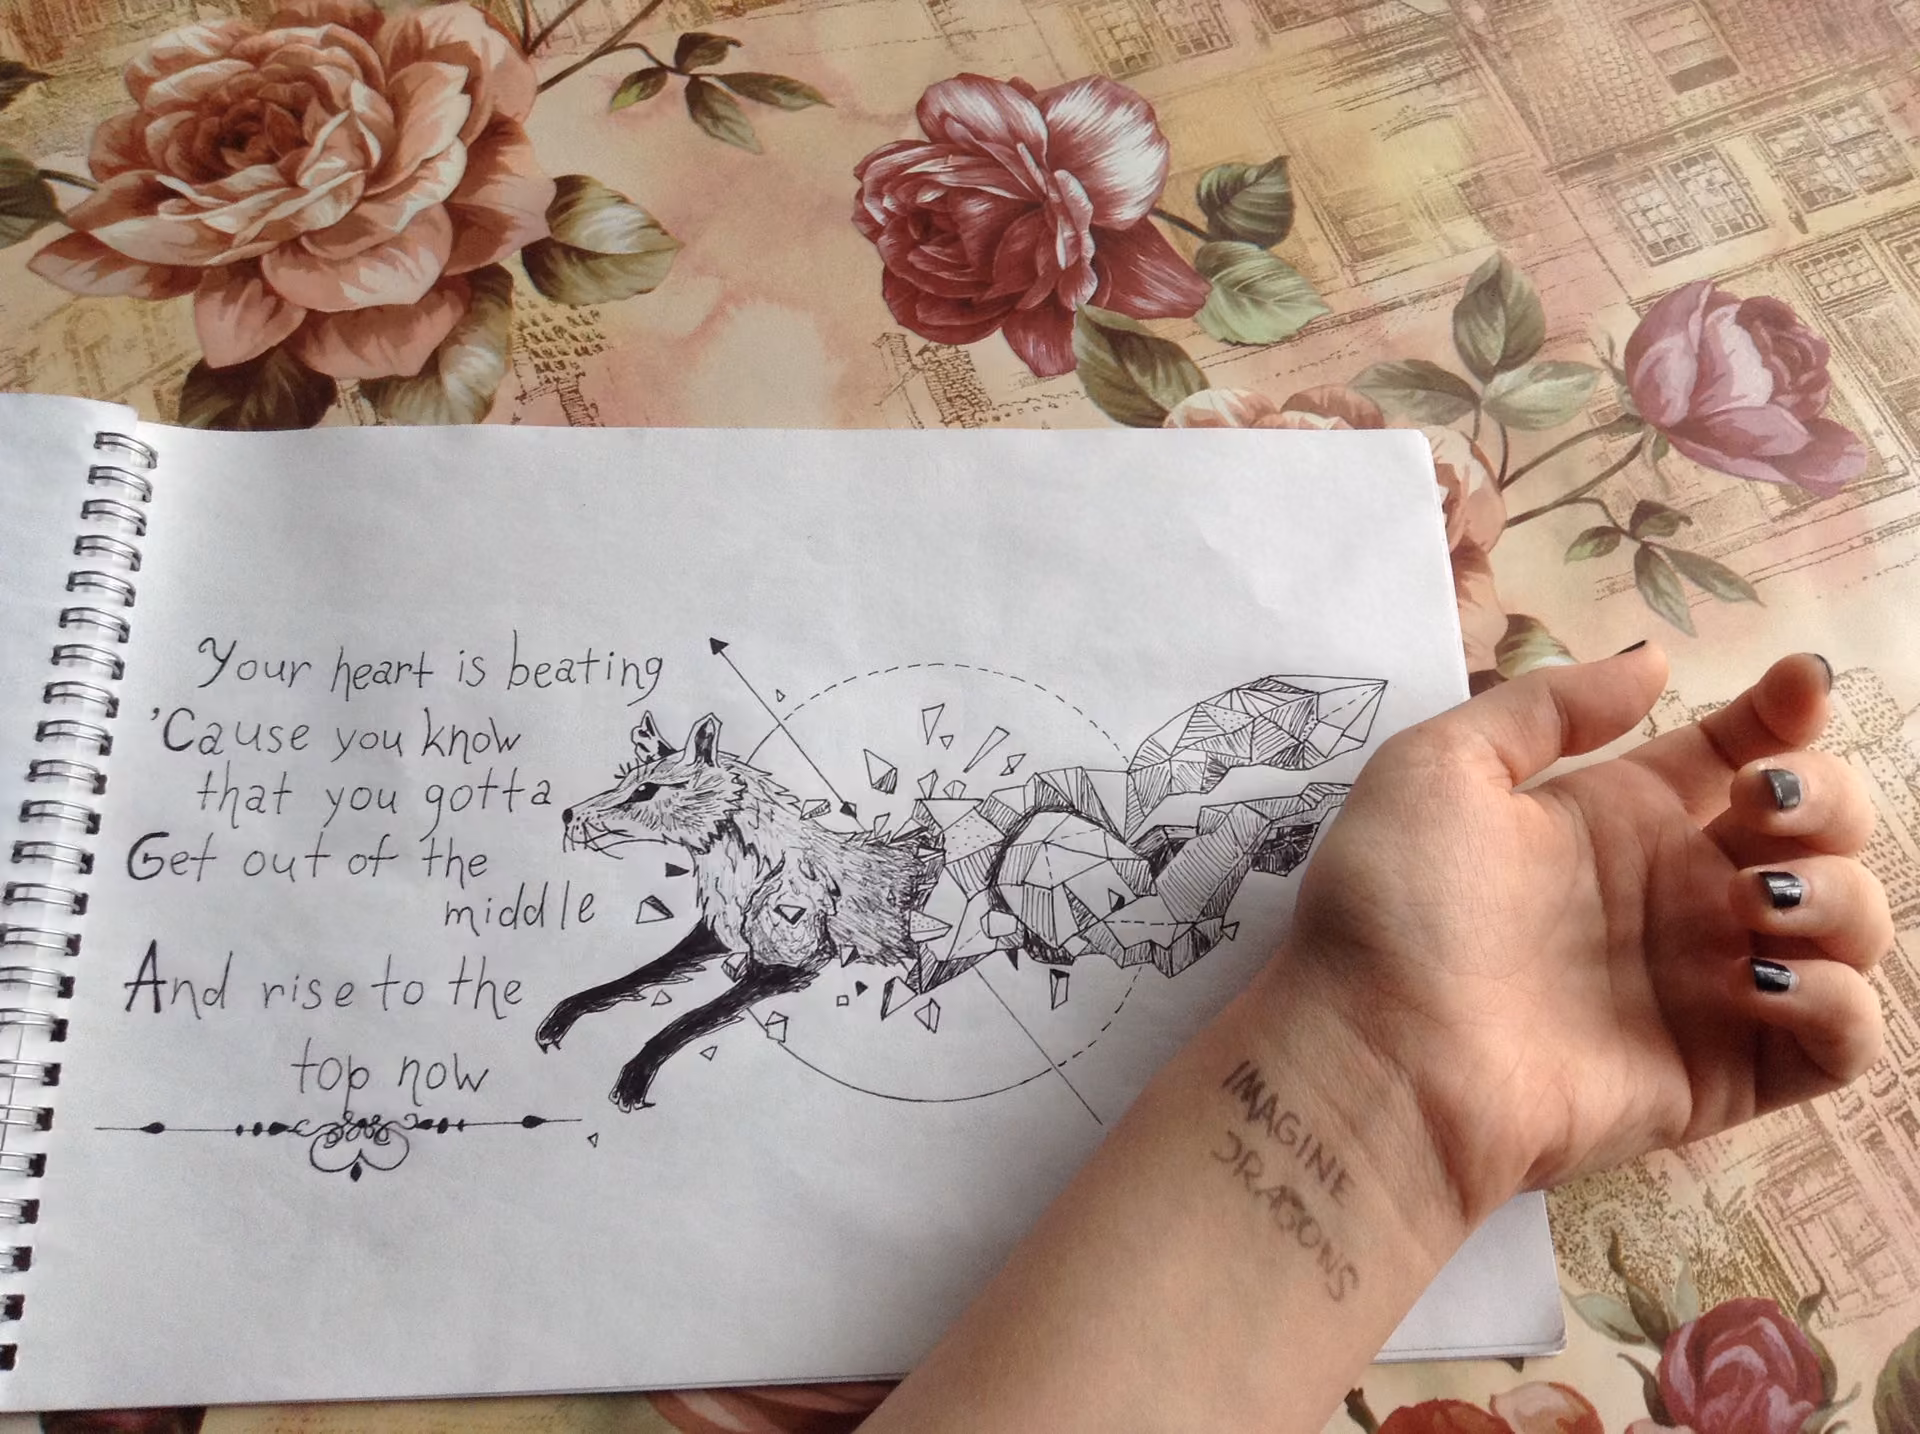 Your heart is beating
'Cause you know
that you gotta
Get out of the
middle
And rise to the
top now
IMAGINE
DRAGONS